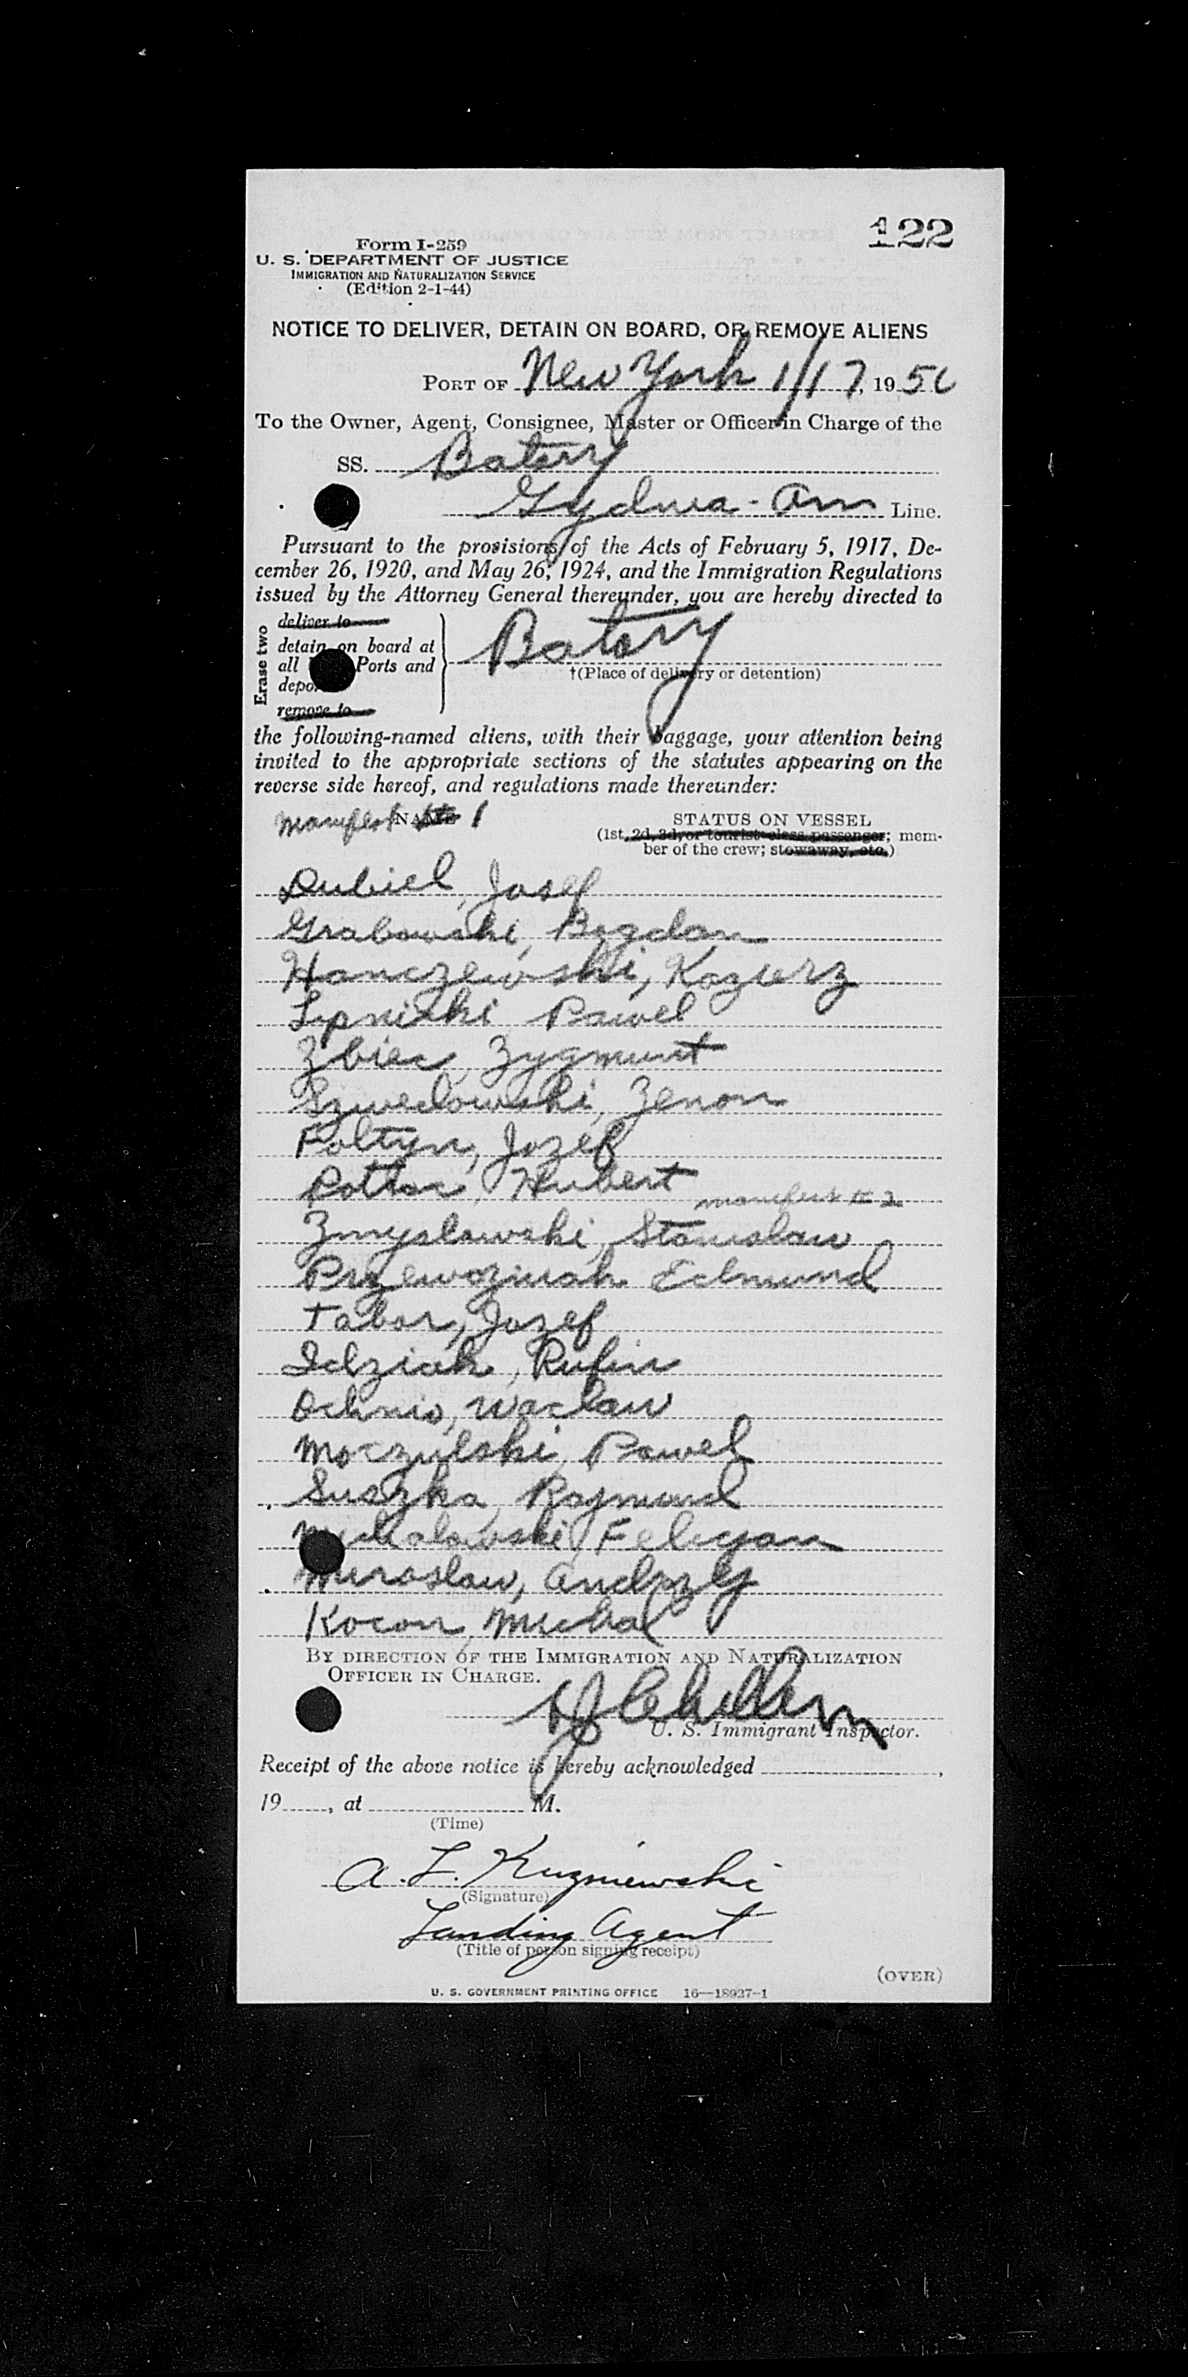 122
Form I-259
U. S. DEPARTMENT OF JUSTICE
IMMIGRATION AND NATURALIZATION SERVICE
(Edition 2-1-44)
NOTICE TO DELIVER, DETAIN ON BOARD, OR REMOVE ALIENS
PORT OF New York 1/17, 1950
To the Owner, Agent, Consignee, Master or Officer in Charge of the
SS. Batory
Gydnia-Am Line.
Pursuant to the provisions of the Acts of February 5, 1917, De-
cember 26, 1920, and May 26, 1924, and the Immigration Regulations
issued by the Attorney General thereunder, you are hereby directed to
Erase two
deliver to
detain on board at
all Ports and
depor
remove to
Batory
†(Place of delivery or detention)
the following-named aliens, with their baggage, your attention being
invited to the appropriate sections of the statutes appearing on the
reverse side hereof, and regulations made thereunder:
Manifest NAME 1
STATUS ON VESSEL
(1st, 2d, 3d, or tourist class passenger; mem-
ber of the crew; stowaway, etc.)
Dubiel, Josef
Grabowski, Bogdan
Hanczewski, Kazierz
Lipnicki Pawel
Zbiec, Zygmunt
Szwedowski, Zenon
Foltyn, Jozef
Hubert manifest # 2
Zmyslawski, Stanislaw
Przewozniak Edmund
Tabor, Jozef
Idziak, Rufin
Ochnio, Waclaw
Moczulski, Pawel
Suszka, Rajmund
Michalowski, Felicyan
Miroslaw, Andrzej
Kocon, Michal
BY DIRECTION OF THE IMMIGRATION AND NATURALIZATION
OFFICER IN CHARGE.
U. S. Immigrant Inspector.
Receipt of the above notice is hereby acknowledged ,
19 , at M.
(Time)
A. L. Kuzniewski
(Signature)
Landing Agent
(Title of person signing receipt)
(OVER)
U. S. GOVERNMENT PRINTING OFFICE 16—18927-1